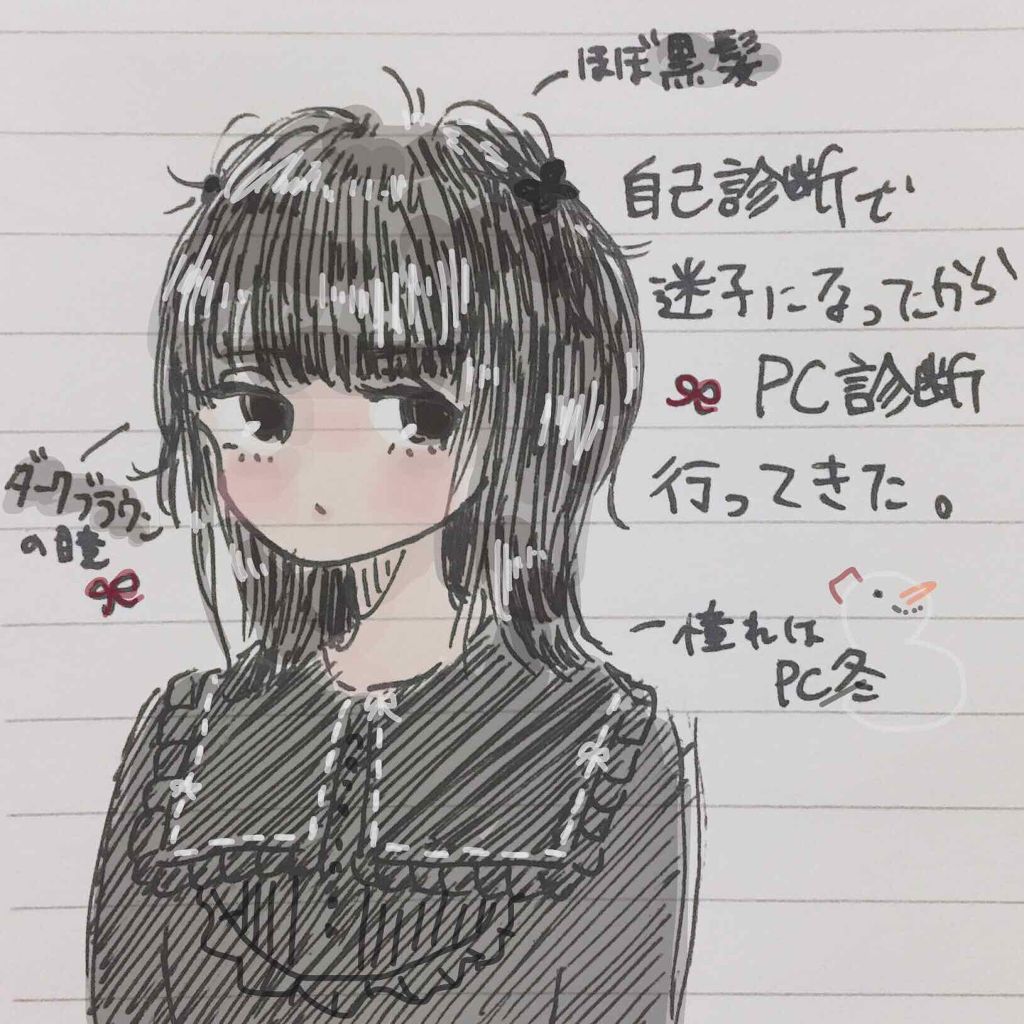 ほぼ黒髪
自己診断で
迷子になったから
PC診断
行ってきた。
ダークブラウン
の瞳
憧れは
PC冬